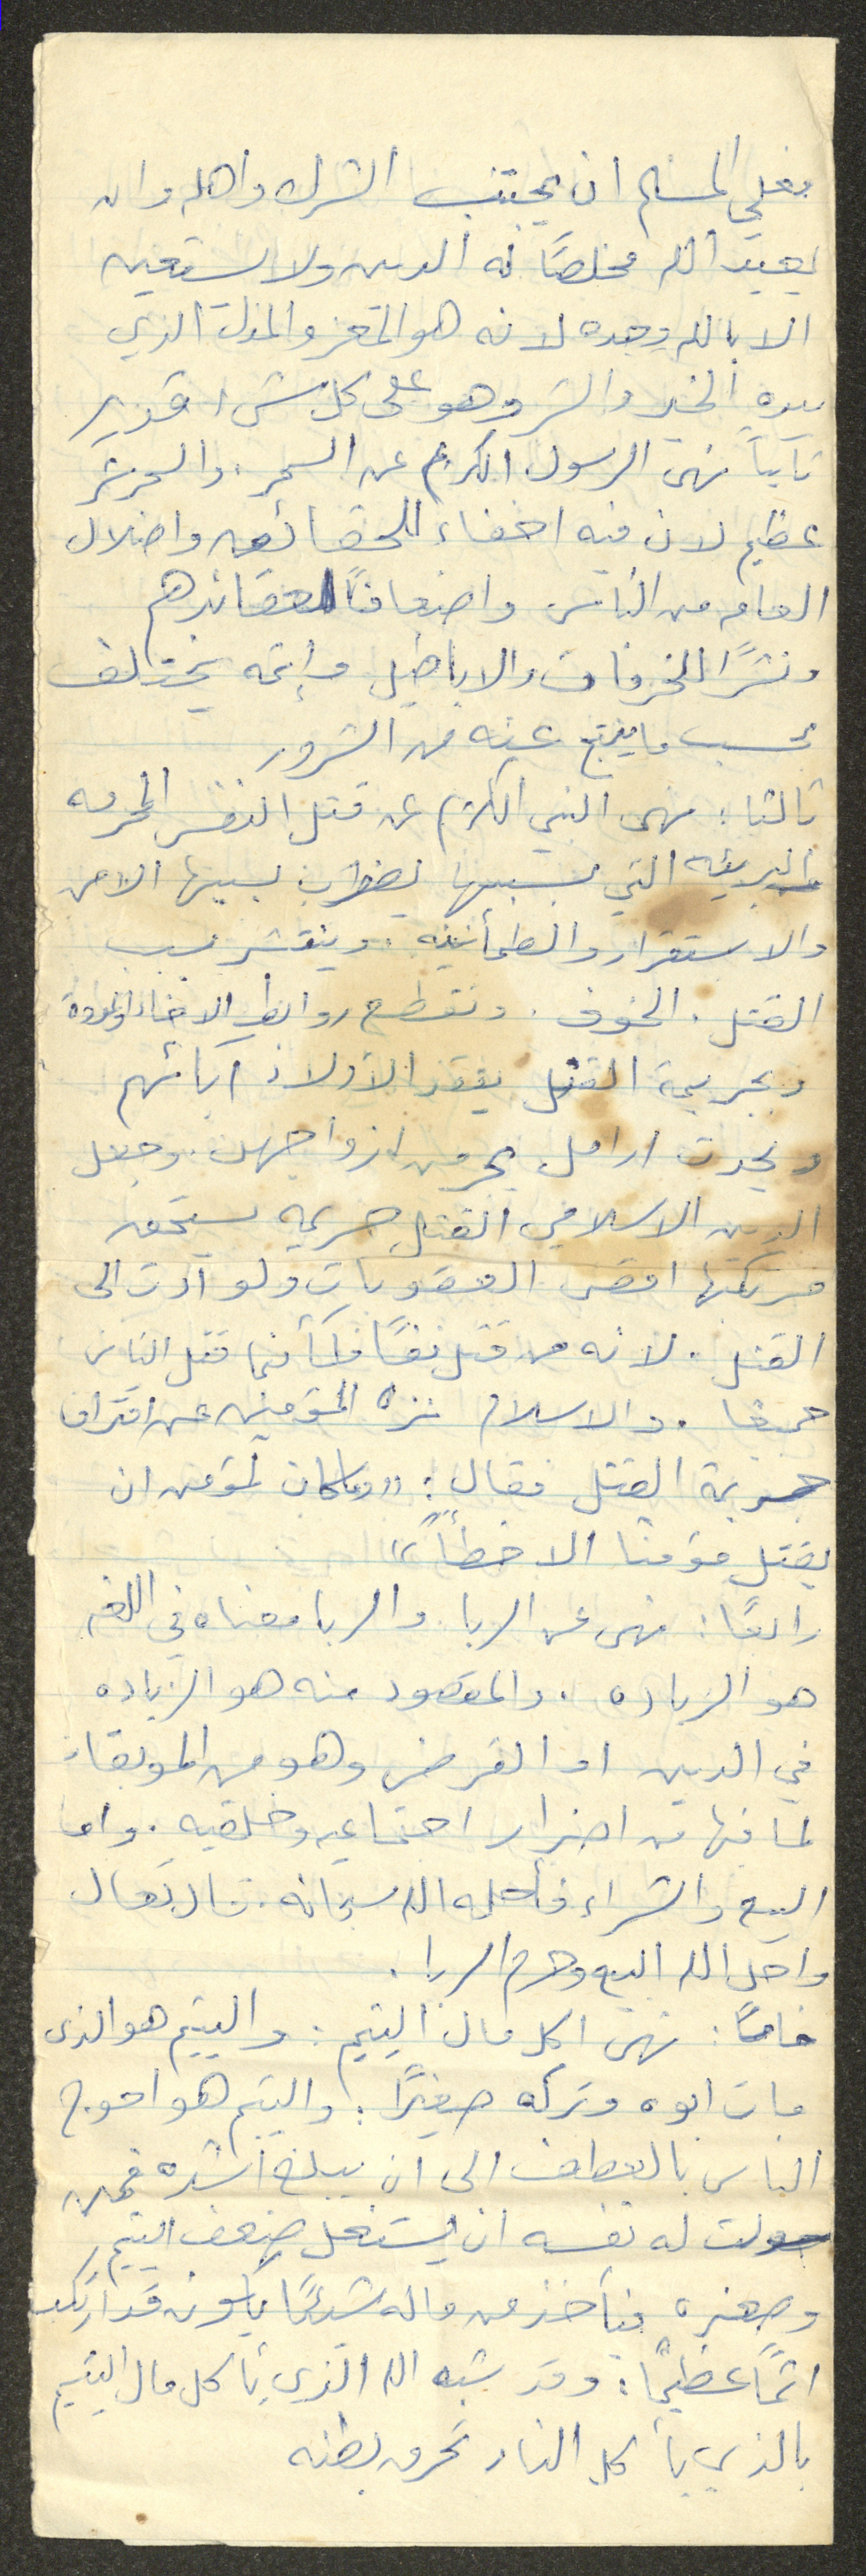 فعلى المسلم ان يجتنب الشرك واهله وان
يعبد الله مخلصًا له الدين ولا يستعين
الا بالله وحده لانه هو المعز والمذل الذي
بيده الخير والشر وهو على كل شيء قدير
ثانياً نهى الرسول الكريم عن السحر. والسحر شر
عظيم لان فيه اخفاء للحقائق واضلال
العامه من الناس واضعافًا لعقائدهم
ونشرًا للخرفات والاباطيل وإثمه يختلف
بحسب ما ينتج عنه من الشرور
ثالثا: نهى النبي الكريم عن قتل النفس المحرمه
والبريئه التي بسببها يضطرب بسببها الامن
والاستقرار والطمأنينه. وينتشر بسبب
القتل. الخوف. وتقطع روابط الاخاء والمودة
وبجريمة القتل يفقد الأولاد آبائهم
ويحدث ارامل يحرمن ازواجهن. وجعل
الدين الاسلامي القتل جريمه يستحق
مرتكبها اقصى العقوبات ولو أدت الى
القتل. لانه من قتل نفسًا فكأنما قتل الناس
جميعا. والاسلام نزه المؤمنين عن اقتراف
جريمة القتل فقال: "وما كان لمؤمن ان
يقتل مؤمنا الا خطأً"
رابعًا: نهى عن الربا والربا معناه في اللغه
هو الزياده. والمقصود منه هو الزياده
في الدين او القرض وهو من الموبقات
لما فيها من اضرار اجتماعيه وخلقيه. واما
البيع والشراء فأحله الله سبحانه. قال تعال
واحل الله البيع وحرم الربا.
خامسًا: نهى اكل مال اليتيم: واليتيم هو الذي
مات ابوه وتركه صغيرًا: واليتيم هو احوج
الناس بالعطف الى ان يبلغ أشده فمن
سولت له نفسه ان يستغل ضعف اليتيم
وصغره فيأخذ من ماله شيئًا يكون قد ارتكب
اثمًا عظيمًا: وقد شبه الله الذي يأكل مال اليتيم
بالذي يأكل النار تحرق بطنه